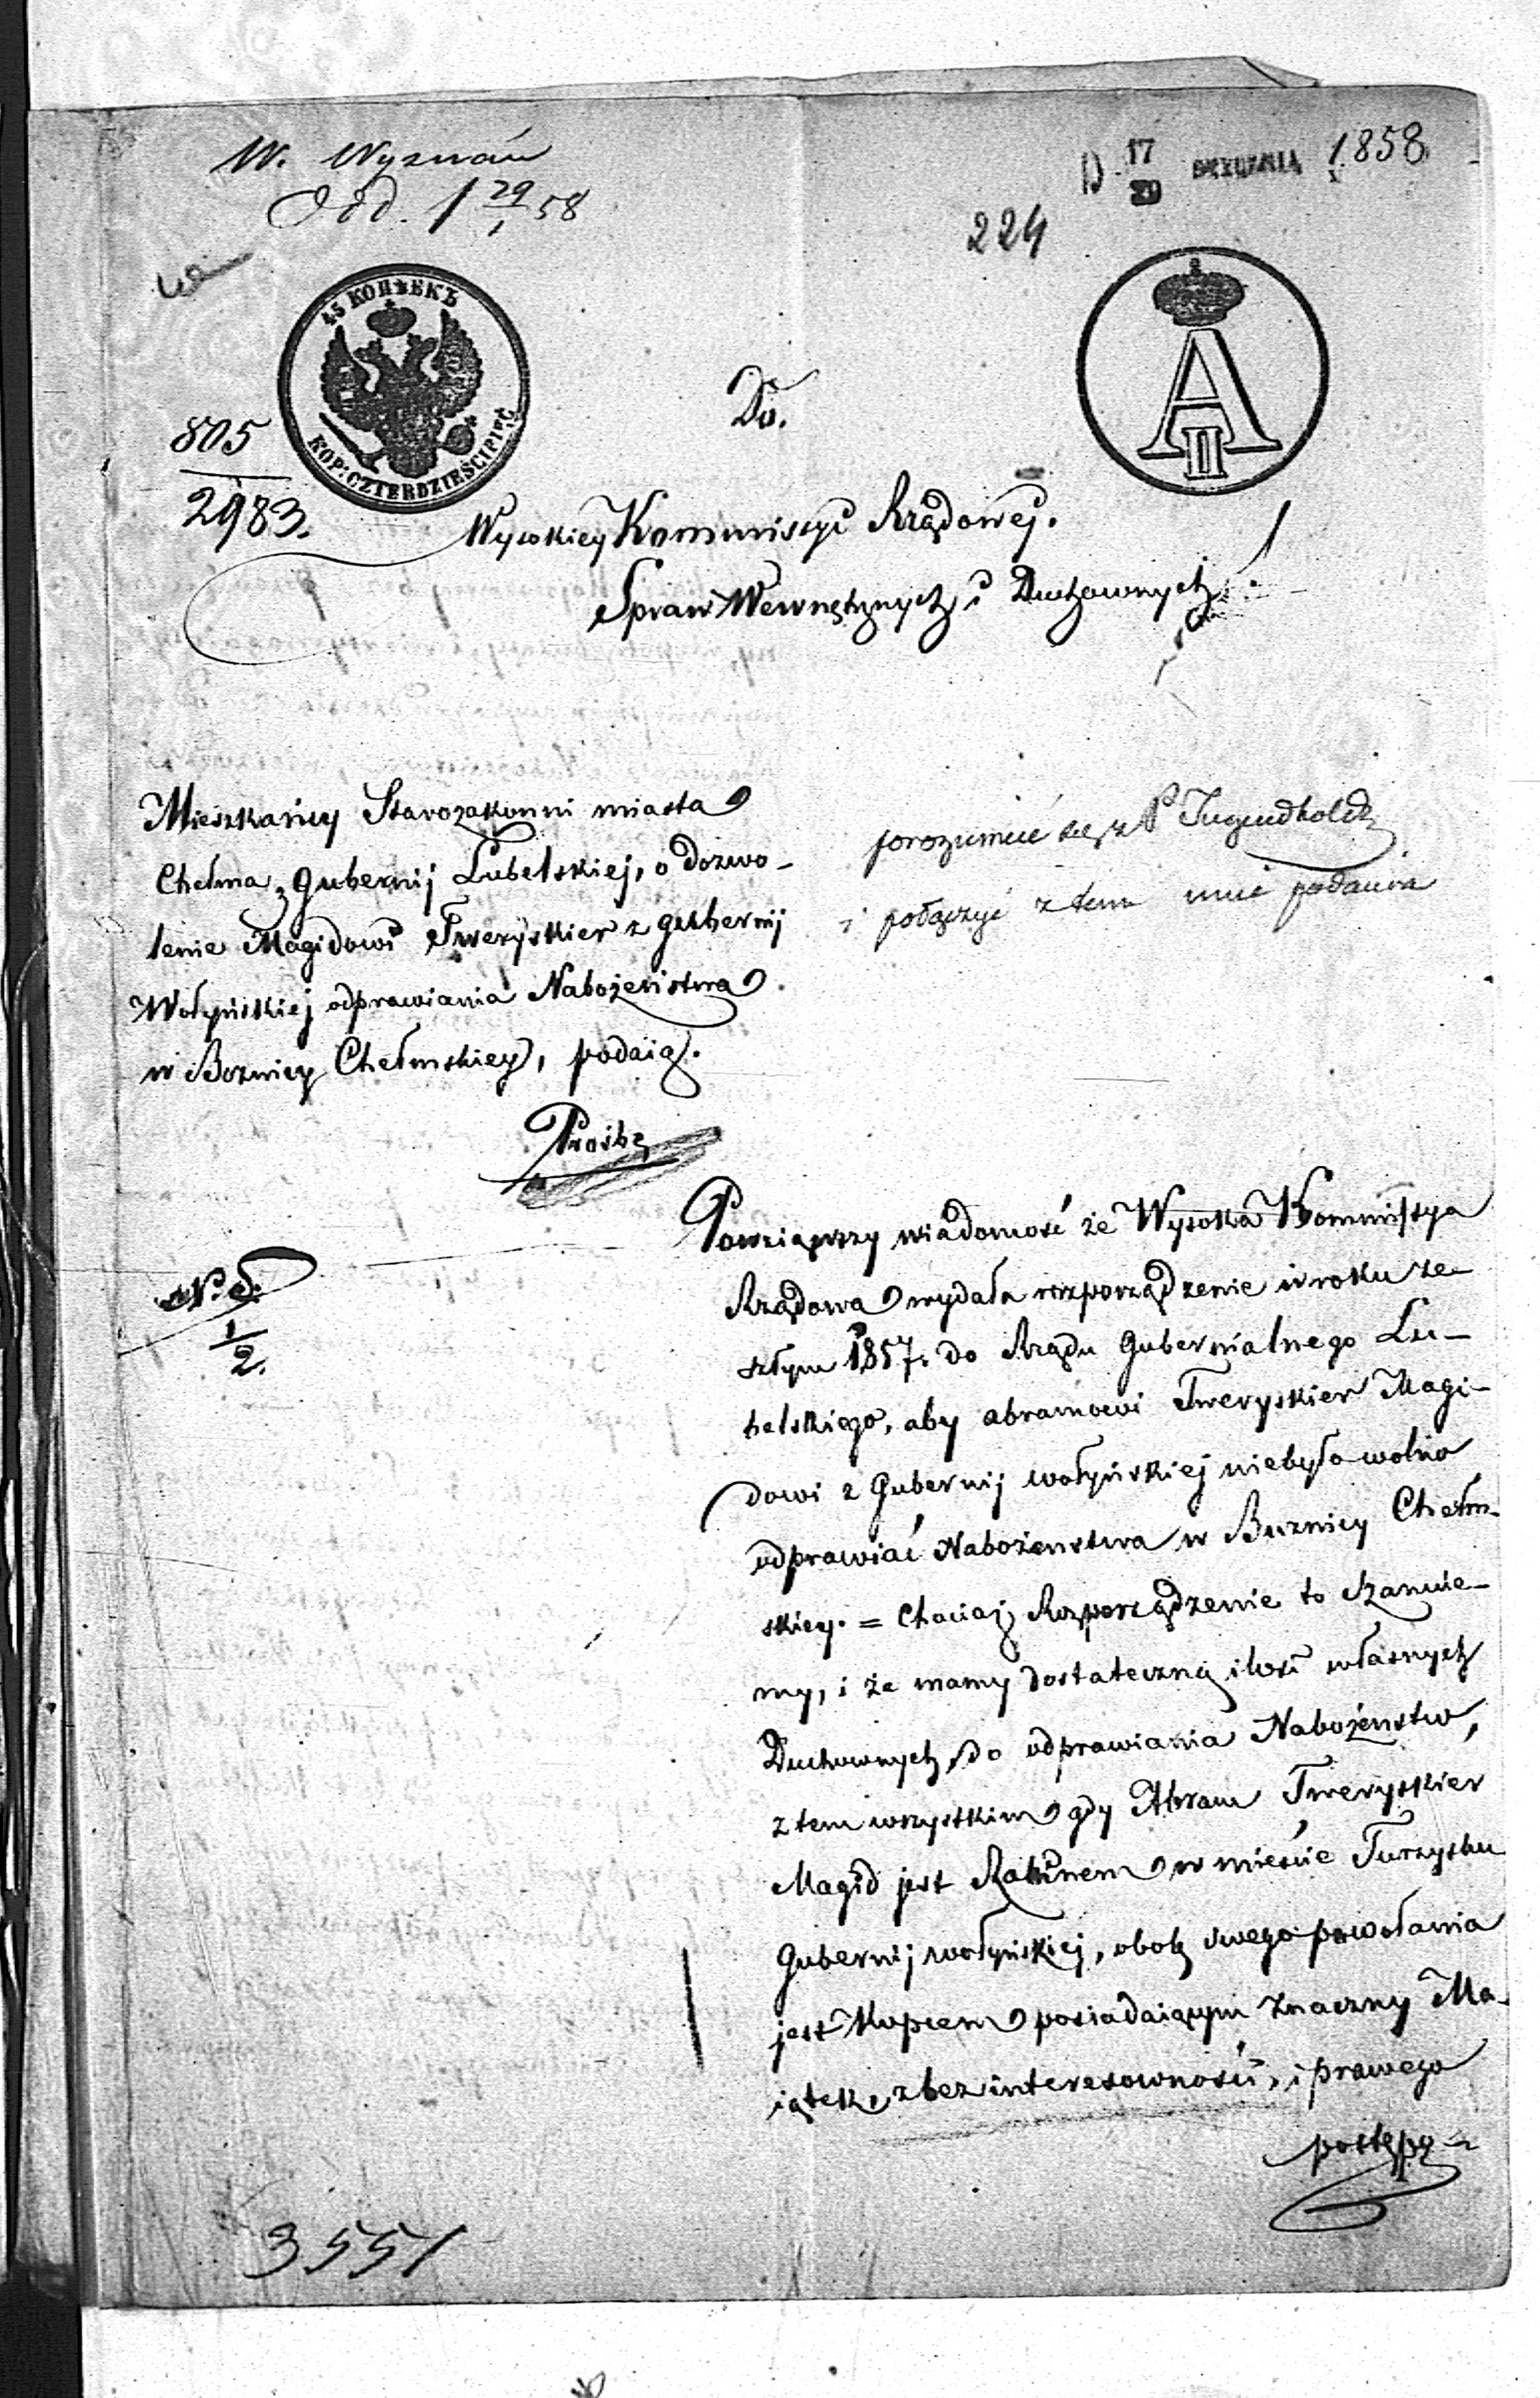 W. Wyznań
Odd. 1 29/1 58
D 17/29 1858
224
45 КОПѢЕКЪ
KOP: CZTERDZIEŚCI PIĘĆ
A II
805
2983.
Do.
Wysokiey Kommissyi Rządowej.
Spraw Wewnętznych i Duchownych
Mieszkańcy Starozakonni miasta
Chełma, Gubernij Lubelskiej, o dozwo-
lenie Magidowi Tweryskier z Gubernij
Wołyńskiej odprawiania Nabożeństwa
w Boznicy Chełmskiey, podaią.
Prośbę
porozumieć się z P Jugendhold
i połączyć z tem podania
N. d.
1/2.
Powziąwszy wiadomość że Wysoka Kommissya
Rządowa wydała rozporządzenie w roku ze-
szłym 1857. do Rządu Gubernialnego Lu-
belskiego, aby abramowi Tweryskier Magi-
dowi z Gubernij wołyńskiej niebyło wolno
odprawiać Nabożenstwa w Buznicy Chełm-
skiey. = Chociaj Rozporządzenie to Szanuie-
my, i że mamy dostateczną ilość własnych
Duchownych do odprawiania Nabożenstw,
z tem wszystkim gdy Abram Tweryskier
Magid jest Rabinem w mieście Turzysku
Gubernij wołyńskiej, obok swego powołania
jest Kupcem posiadaiącym znaczny Ma-
iątek, z bezinteresowności, i prawego
postępo-
3551